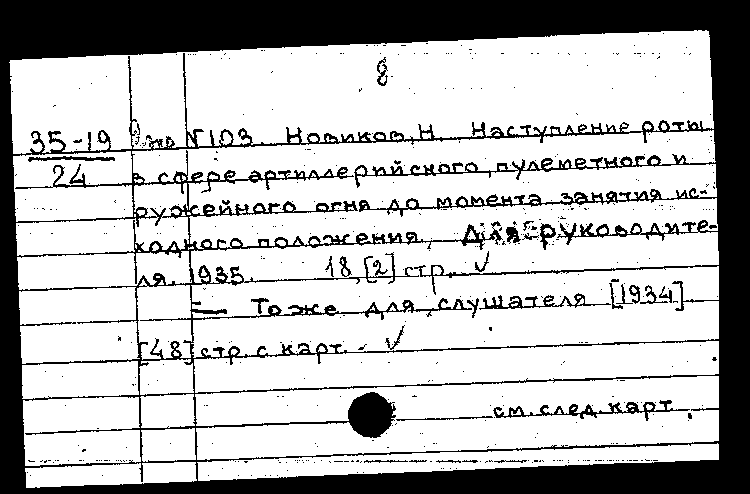 8
35-19 № 103. Новиков, Н. Наступление роты
24 в сфере артиллерийского, пулеметного и
ружейного огня до момента занятия ис-
ходного положения, Для руководите-
ля. 1935. 18, [2] стр. ✓
= То же для слушателя [1934]
[48] стр. с карт. - ✓
см. след. карт.